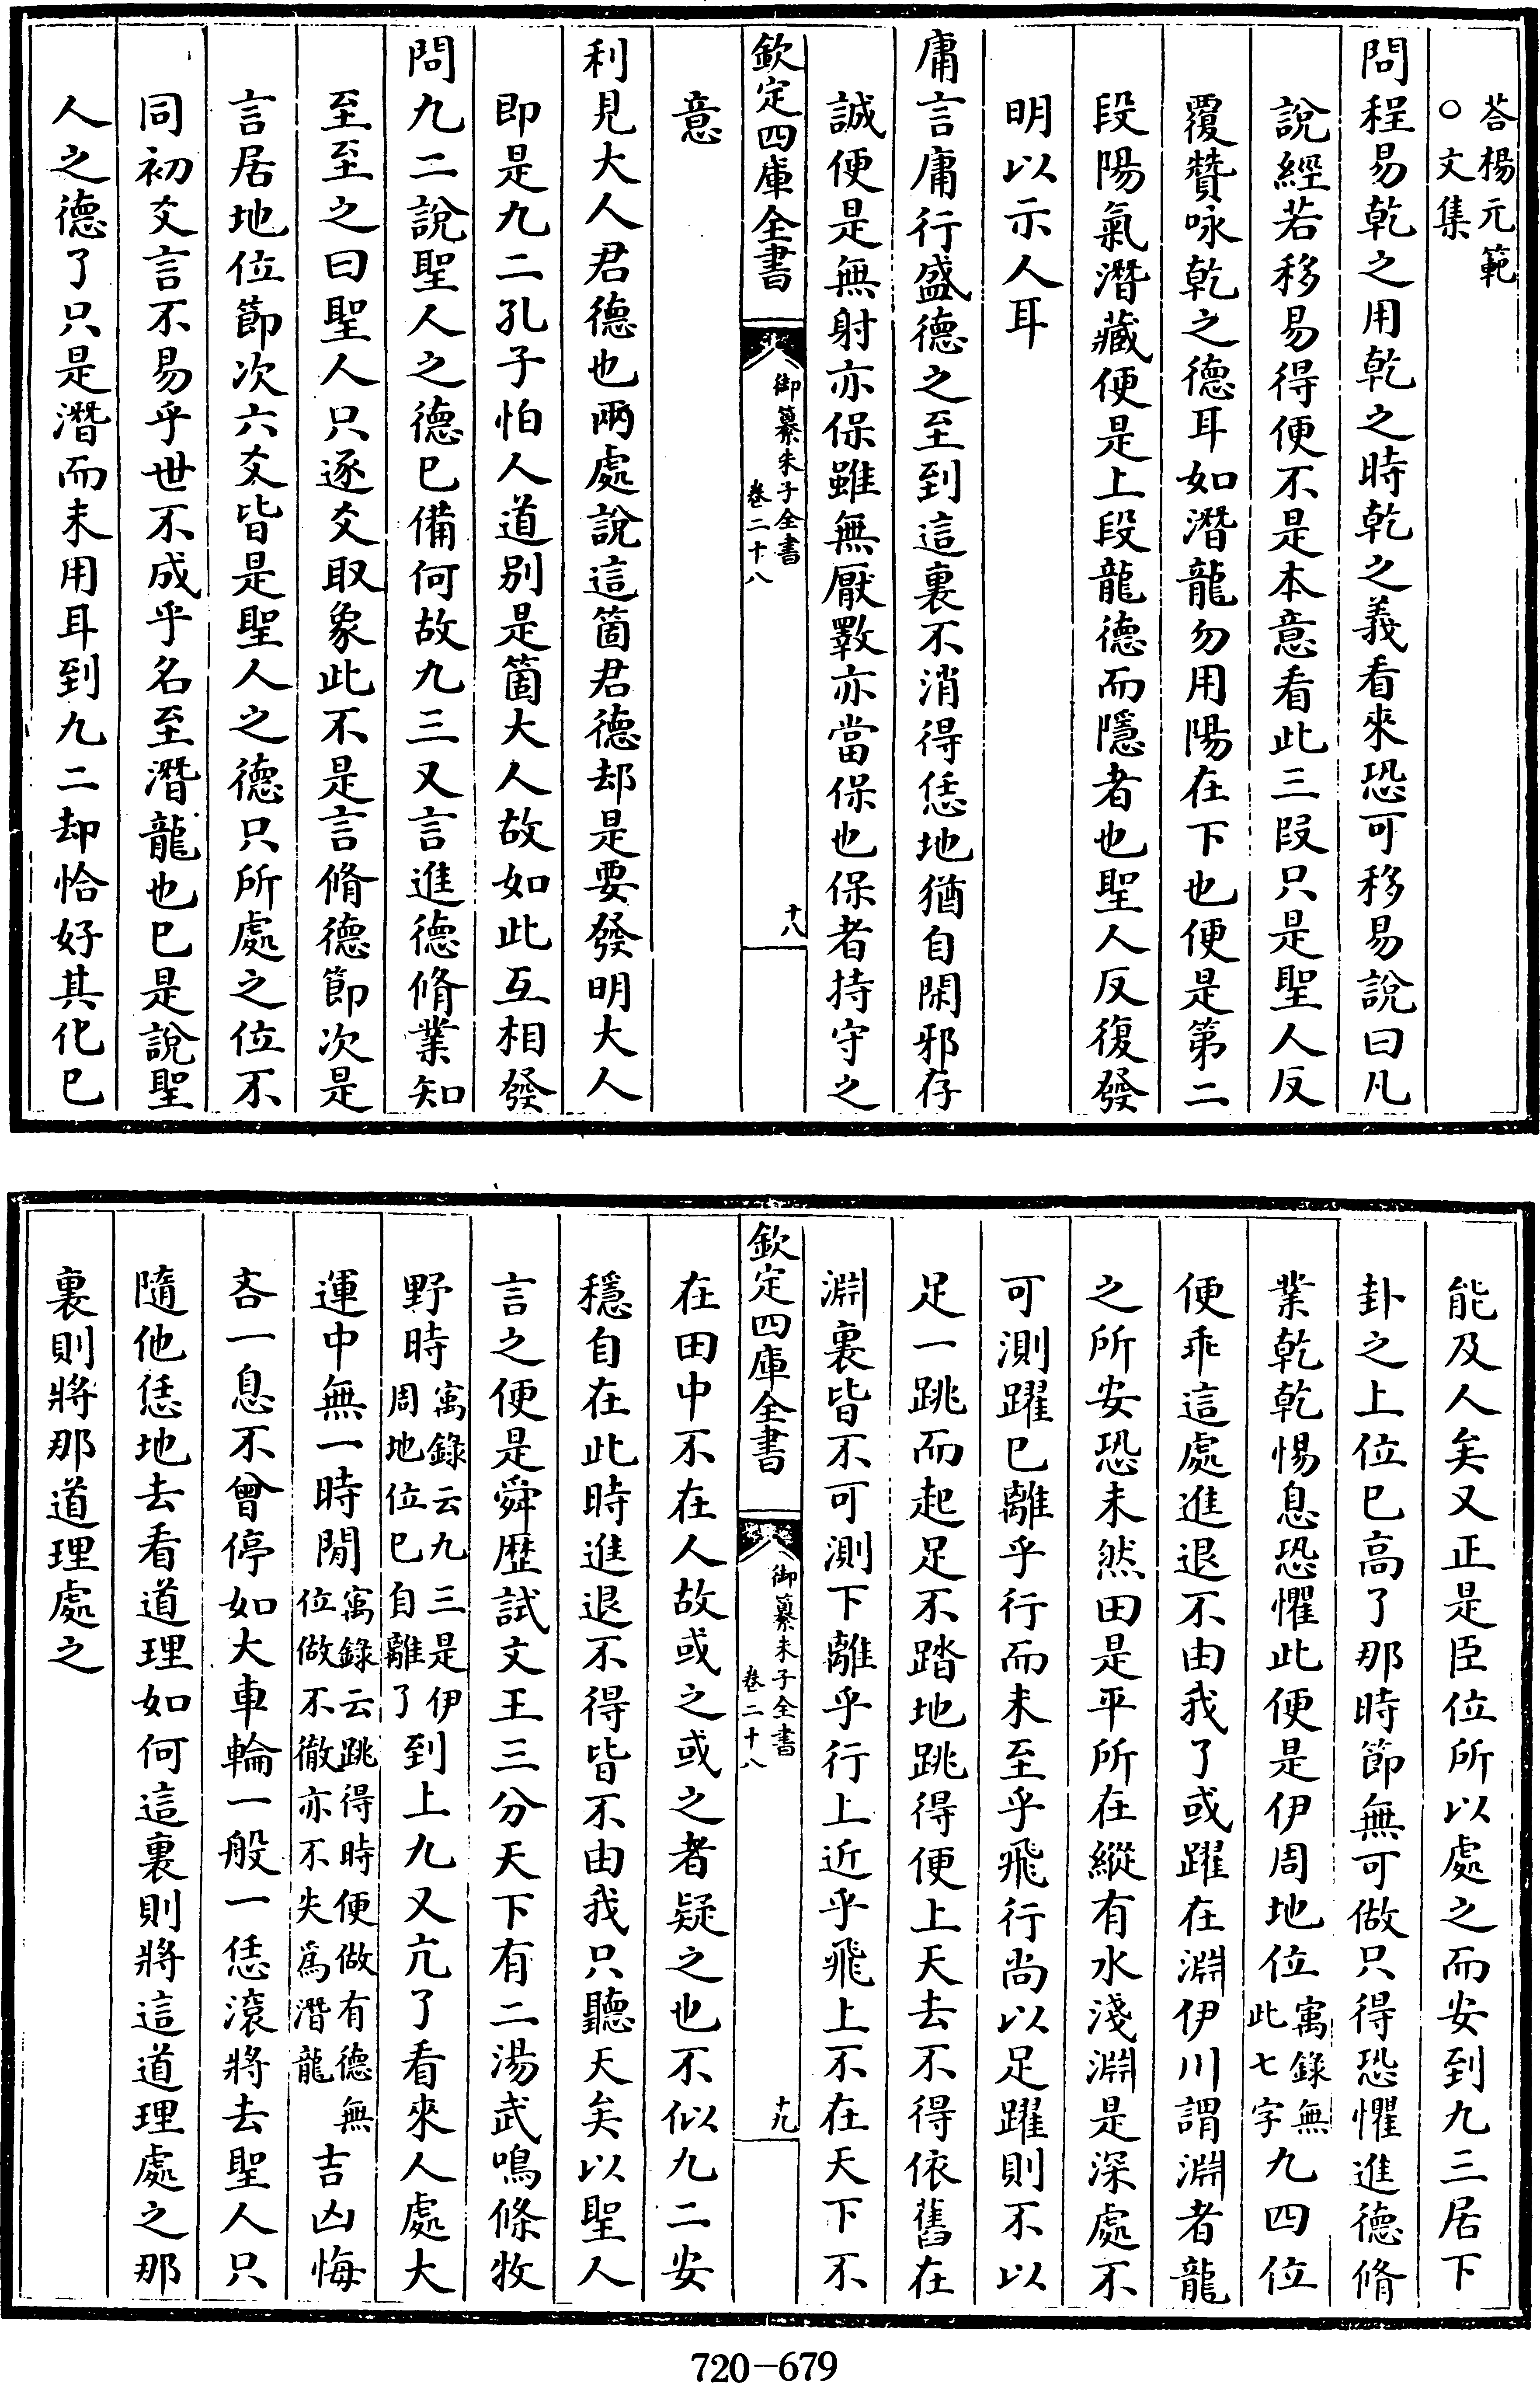 荅楊元範
○文集
問程易乾之用乾之時乾之義看來恐可移易說曰凡
說經若移易得便不是本意看此三段只是聖人反
覆贊咏乾之德耳如潛龍勿用陽在下也便是第二
段陽氣潛藏便是上段龍德而隱者也聖人反復發
明以示人耳
庸言庸行盛德之至到這裏不消得恁地猶自閑邪存
誠便是無射亦保雖無厭斁亦當保也保者持守之
欽定四庫全書
御纂朱子全書
卷二十八
十八
意
利見大人君德也兩處說這箇君德却是要發明大人
即是九二孔子怕人道别是箇大人故如此互相發
問九二說聖人之德已備何故九三又言進德脩業知
至至之曰聖人只逐爻取象此不是言脩德節次是
言居地位節次六爻皆是聖人之德只所處之位不
同初爻言不易乎世不成乎名至潛龍也已是說聖
人之德了只是潛而未用耳到九二却恰好其化已
能及人矣又正是臣位所以處之而安到九三居下
卦之上位已高了那時節無可做只得恐懼進德脩
業乾乾惕息恐懼此便是伊周地位寓錄無此七字九四位
便乖這處進退不由我了或躍在淵伊川謂淵者龍
之所安恐未然田是平所在縱有水淺淵是深處不
可測躍已離乎行而未至乎飛行尚以足躍則不以
足一跳而起足不踏地跳得便上天去不得依舊在
淵裏皆不可測下離乎行上近乎飛上不在天下不
欽定四庫全書
御纂朱子全書
卷二十八
十九
在田中不在人故或之或之者疑之也不似九二安
穩自在此時進退不得皆不由我只聽天矣以聖人
言之便是舜歷試文王三分天下有二湯武鳴條牧
野時寓錄云九三是伊周地位已自離了到上九又亢了看來人處大
運中無一時閒寓錄云跳得時便做有德無位做不徹亦不失爲潛龍吉凶悔
吝一息不曾停如大車輪一般一恁滾將去聖人只
隨他恁地去看道理如何這裏則將這道理處之那
裏則將那道理處之
720-679